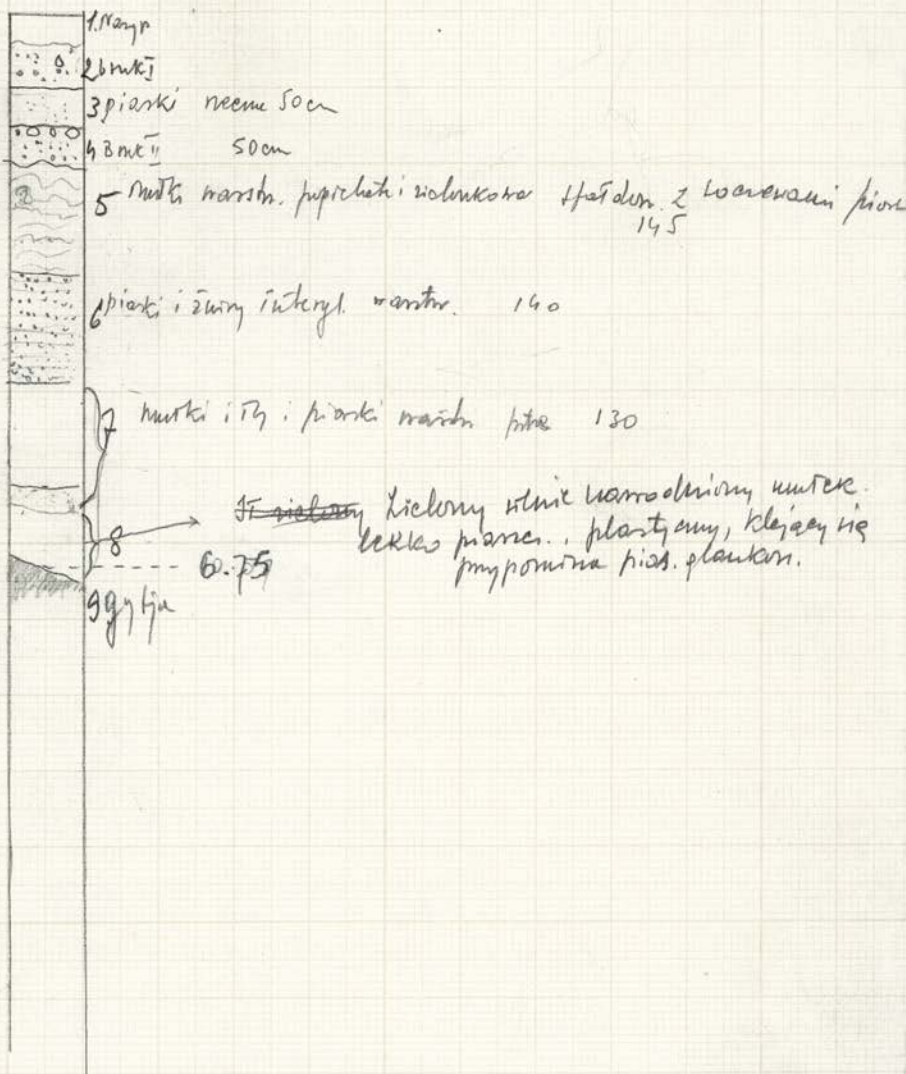 1. Nasyp
2 bruk I
3 piaski rzeczne 50cm
4 Bruk II 50cm
5 mułki warstw. popielate i zielonkowa sfałdow. z
145
6 piaski i żwiry intergl. warstw. 140
7 mułki i iły i piaski warstw 130
Ił zielony Zielony silnie nawodniony mułek.
lekko piaszcz., plastyczny, klejący się
przypomina pias. glaukon.
8
6.75
9 gytja